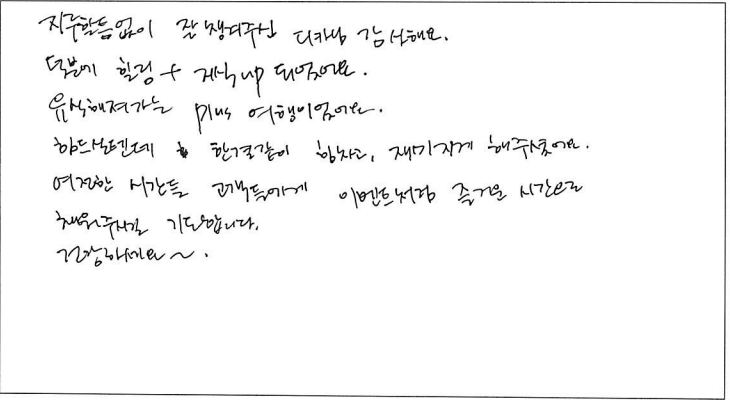 지루할틈없이 잘 챙겨주신 감사해요.
덕분에 힐링 + 지식 up 되었어요.
유식해져가는 plus 여행이었어요.
힘드실텐데 한결같이 힘차고, 재미지게 해주셨어요.
여전한 시간들 고객들에게 이벤트처럼 즐거운 시간으로
채워주시길 기도합니다.
건강하세요~.